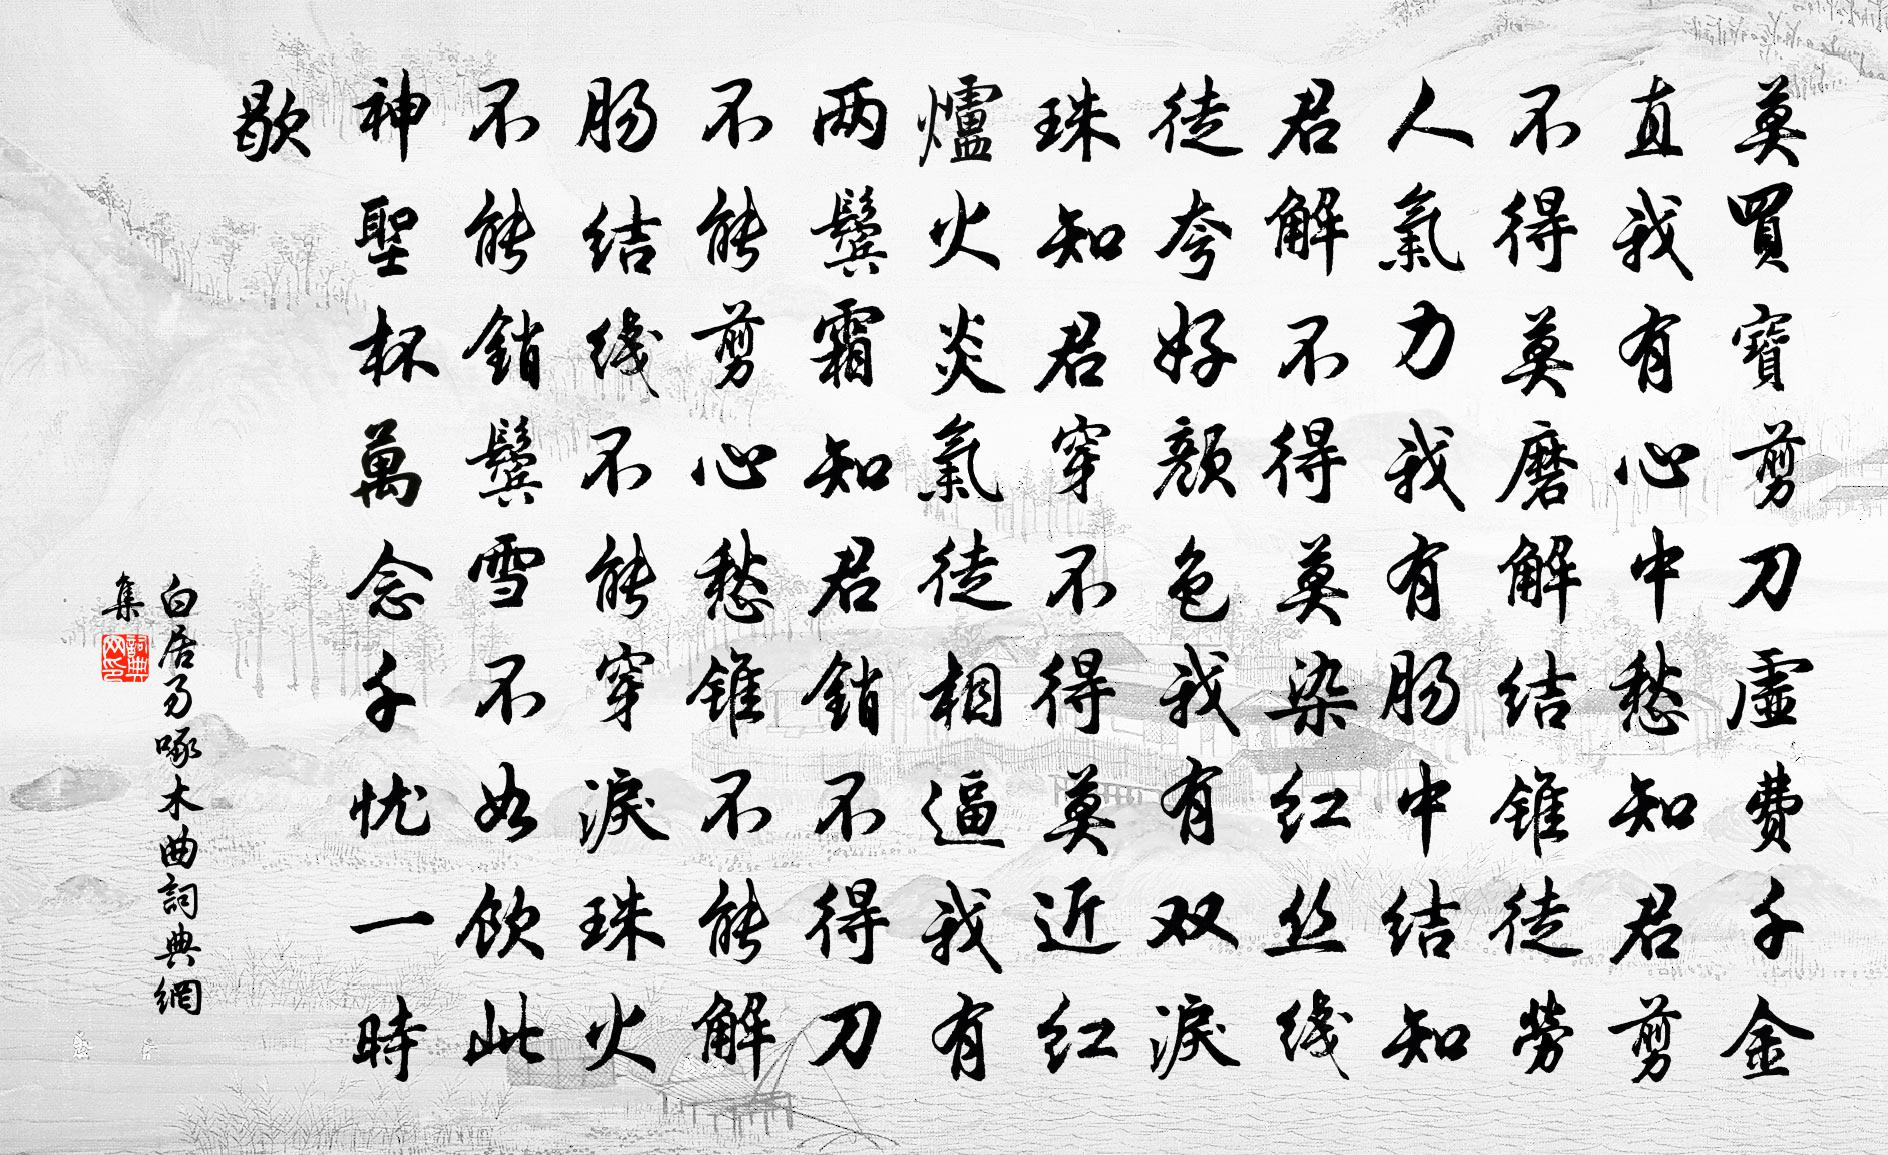 莫買寶剪刀虛費千金
直我有心中愁知君剪
不得莫磨解结锥徒勞
人氣力我有肠中结知
君解不得莫染红丝线
徒夸好顏色我有双淚
珠知君穿不得莫近红
爐火炎氣徒相逼我有
两鬓霜知君銷不得刀
不能剪心愁锥不能解
肠结线不能穿淚珠火
不能銷鬓雪不如飲此
神聖杯萬念千忧一時
歇
白居易啄木曲詞典網
集
詞典网印